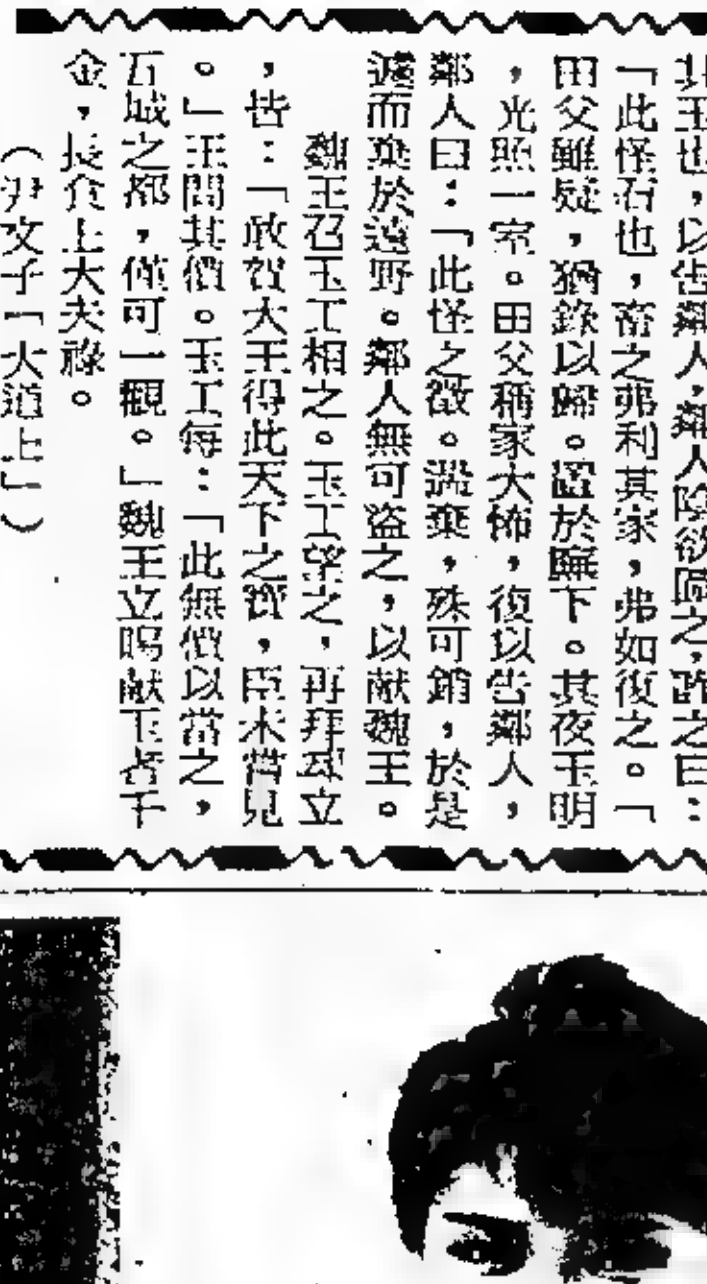 其玉也，以告鄰人，鄰人陰欲圖之，詐之曰：
「此怪石也，畜之弗利其家，弗如復之。「
田父雖疑，猶錄以歸。置於廡下。其夜玉明
，光照一室。田父稱家大怖，復以告鄰人，
鄰人曰：「此怪之徵。遄棄，殊可銷，於是
遽而棄於遠野。鄰人無可盜之，以献魏王。
魏王召玉工相之。玉工望之，再拜却立
，皆：「敢賀大王得此天下之寶，臣未嘗見
。」王問其價。玉工每：「此無價以當之，
五城之都，僅可一觀。」魏王立嗚献玉者千
金，長食上大夫祿。
（尹文子「大道上」）